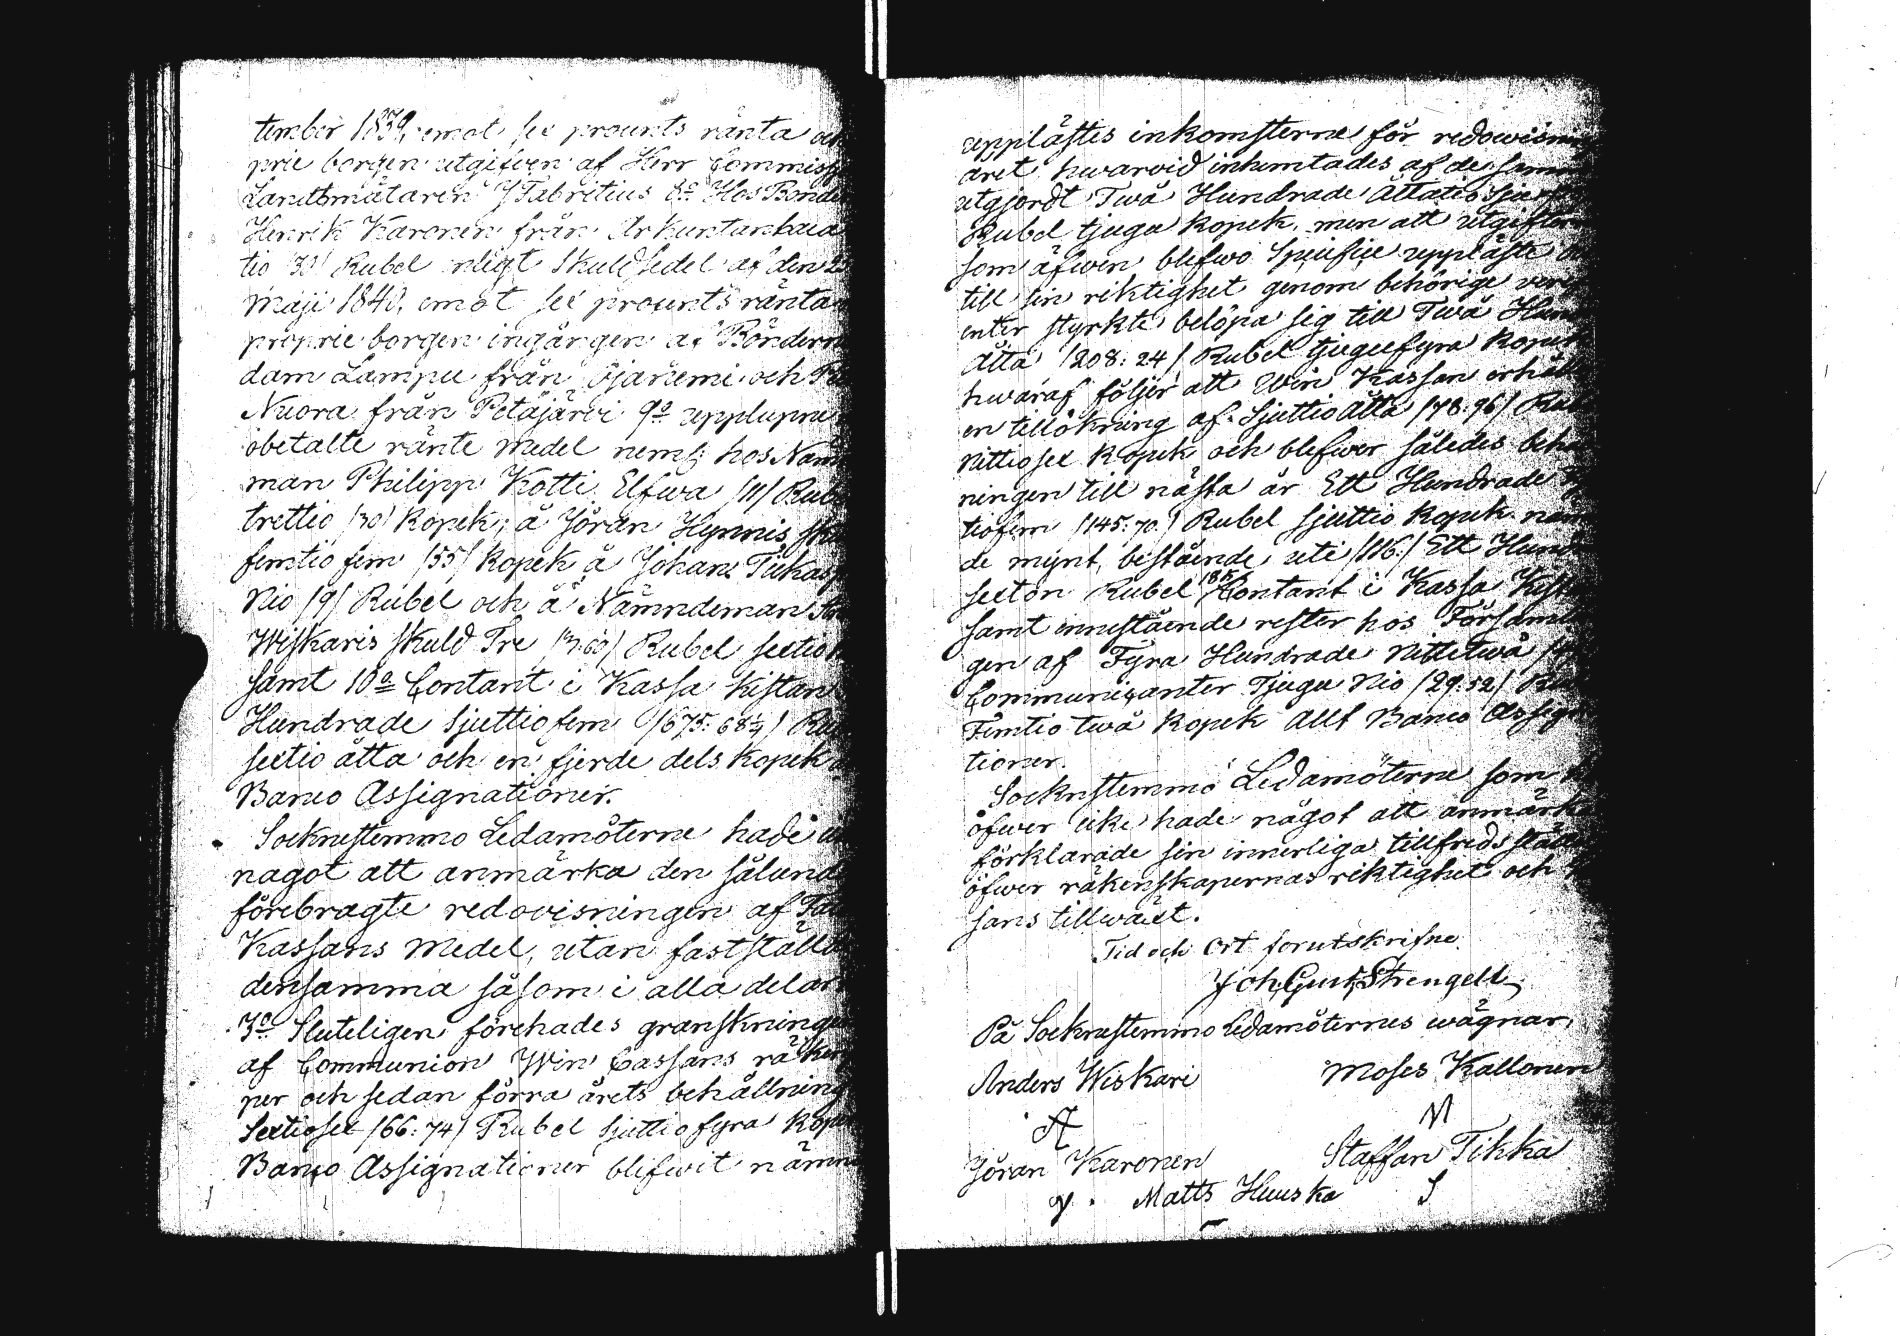 tember 1839, emot sex procents ränta och
prie borgen utgifven af Herr Commiss
Landtmätaren J Fabritius 8o Hos Bonde
Henrik Karonen från Arkuntanhara
tio /30/ Rubel enligt Skuldsedel af den 2
Maji 1840, emot sex procents ränta
proprie borgen ingången af Bönderne
dam Lampu från Ojaniemi och
Nuora från Petäjärvi 9o upplupne
obetalte ränte Medel neml. hos Nämn
man Philipp Kotti Elfwa /11/ Rub
trettio /30/ Kopek; å Jöran Hynnis sku
femtio fem /55/ Kopek å Johan Tukas
Nio /9/ Rubel och å Nämndeman
Wiskaris skuld Tre /3.60/ Rubel sextio
samt 10o Contant i Kassa Kistan
Hundrade Sjuttiofem /675: 68¼/ Rub
sextio åtta och en fjerde dels Kopek
Banco Assignationer.
Socknestemmo Ledamöterne hade
något att anmärka den sålund
förebragte redovisningen af
Kassans Medel, utan fastställd
densamma såsom i alla delar
3o Sluteligen förehades granskninge
af Communion Win Cassans räken
per och sedan förra årets behållning
Sextiosex /66: 74/ Rubel Sjuttiofyra Kopek
Banco Assignationer blifwit nämn
upplästes inkomsterne för redowisnin
året hwarvid inhemtades af de samm
utgjordt Twå Hundrade Åttatio Sju
Rubel tjugu Kopek, men att utgiftern
som äfwen blefwo Specifice uppläste
till sin riktighet genom behörige veri
enter styrkte belöpa sig till Twå Hun
Åtta /208: 24/ Rubel tjugufyra Kopek
hwaraf följer att Win Kassan erhåll
en tillökning af Sjuttio Åtta /78.96/ Rub
Nittiosex Kopek och blefwer således behå
ningen till nästa år Ett Hundrade
tiofem /145: 70./ Rubel sjuttio Kopek näm
de mynt, bestående uti /116:/ Ett Hun
sexton Rubel 18 K Contant i Kassa Kist
samt innestående rester hos Församl
gen af Fyra Hundrade Nittitwå
Communicanter Tjugu Nio /29: 52/ Rub
Femtio twå Kopek Allt Banco Assign
tioner.
Socknstemmo Ledamöterne som
öfwer icke hade något att anmärk
förklarade sin innerliga tillfredsställ
öfwer räkenskapernas riktighet och
sans tillwäxt.
Tid och Ort förutskrifne.
Joh. Gust. Strengell
På Socknestemmo Ledamöternes wägnar,
Anders Wiskari Moses Kallonen
A M
Jöran Karonen Staffan Tikka
J. Matts Huuska S